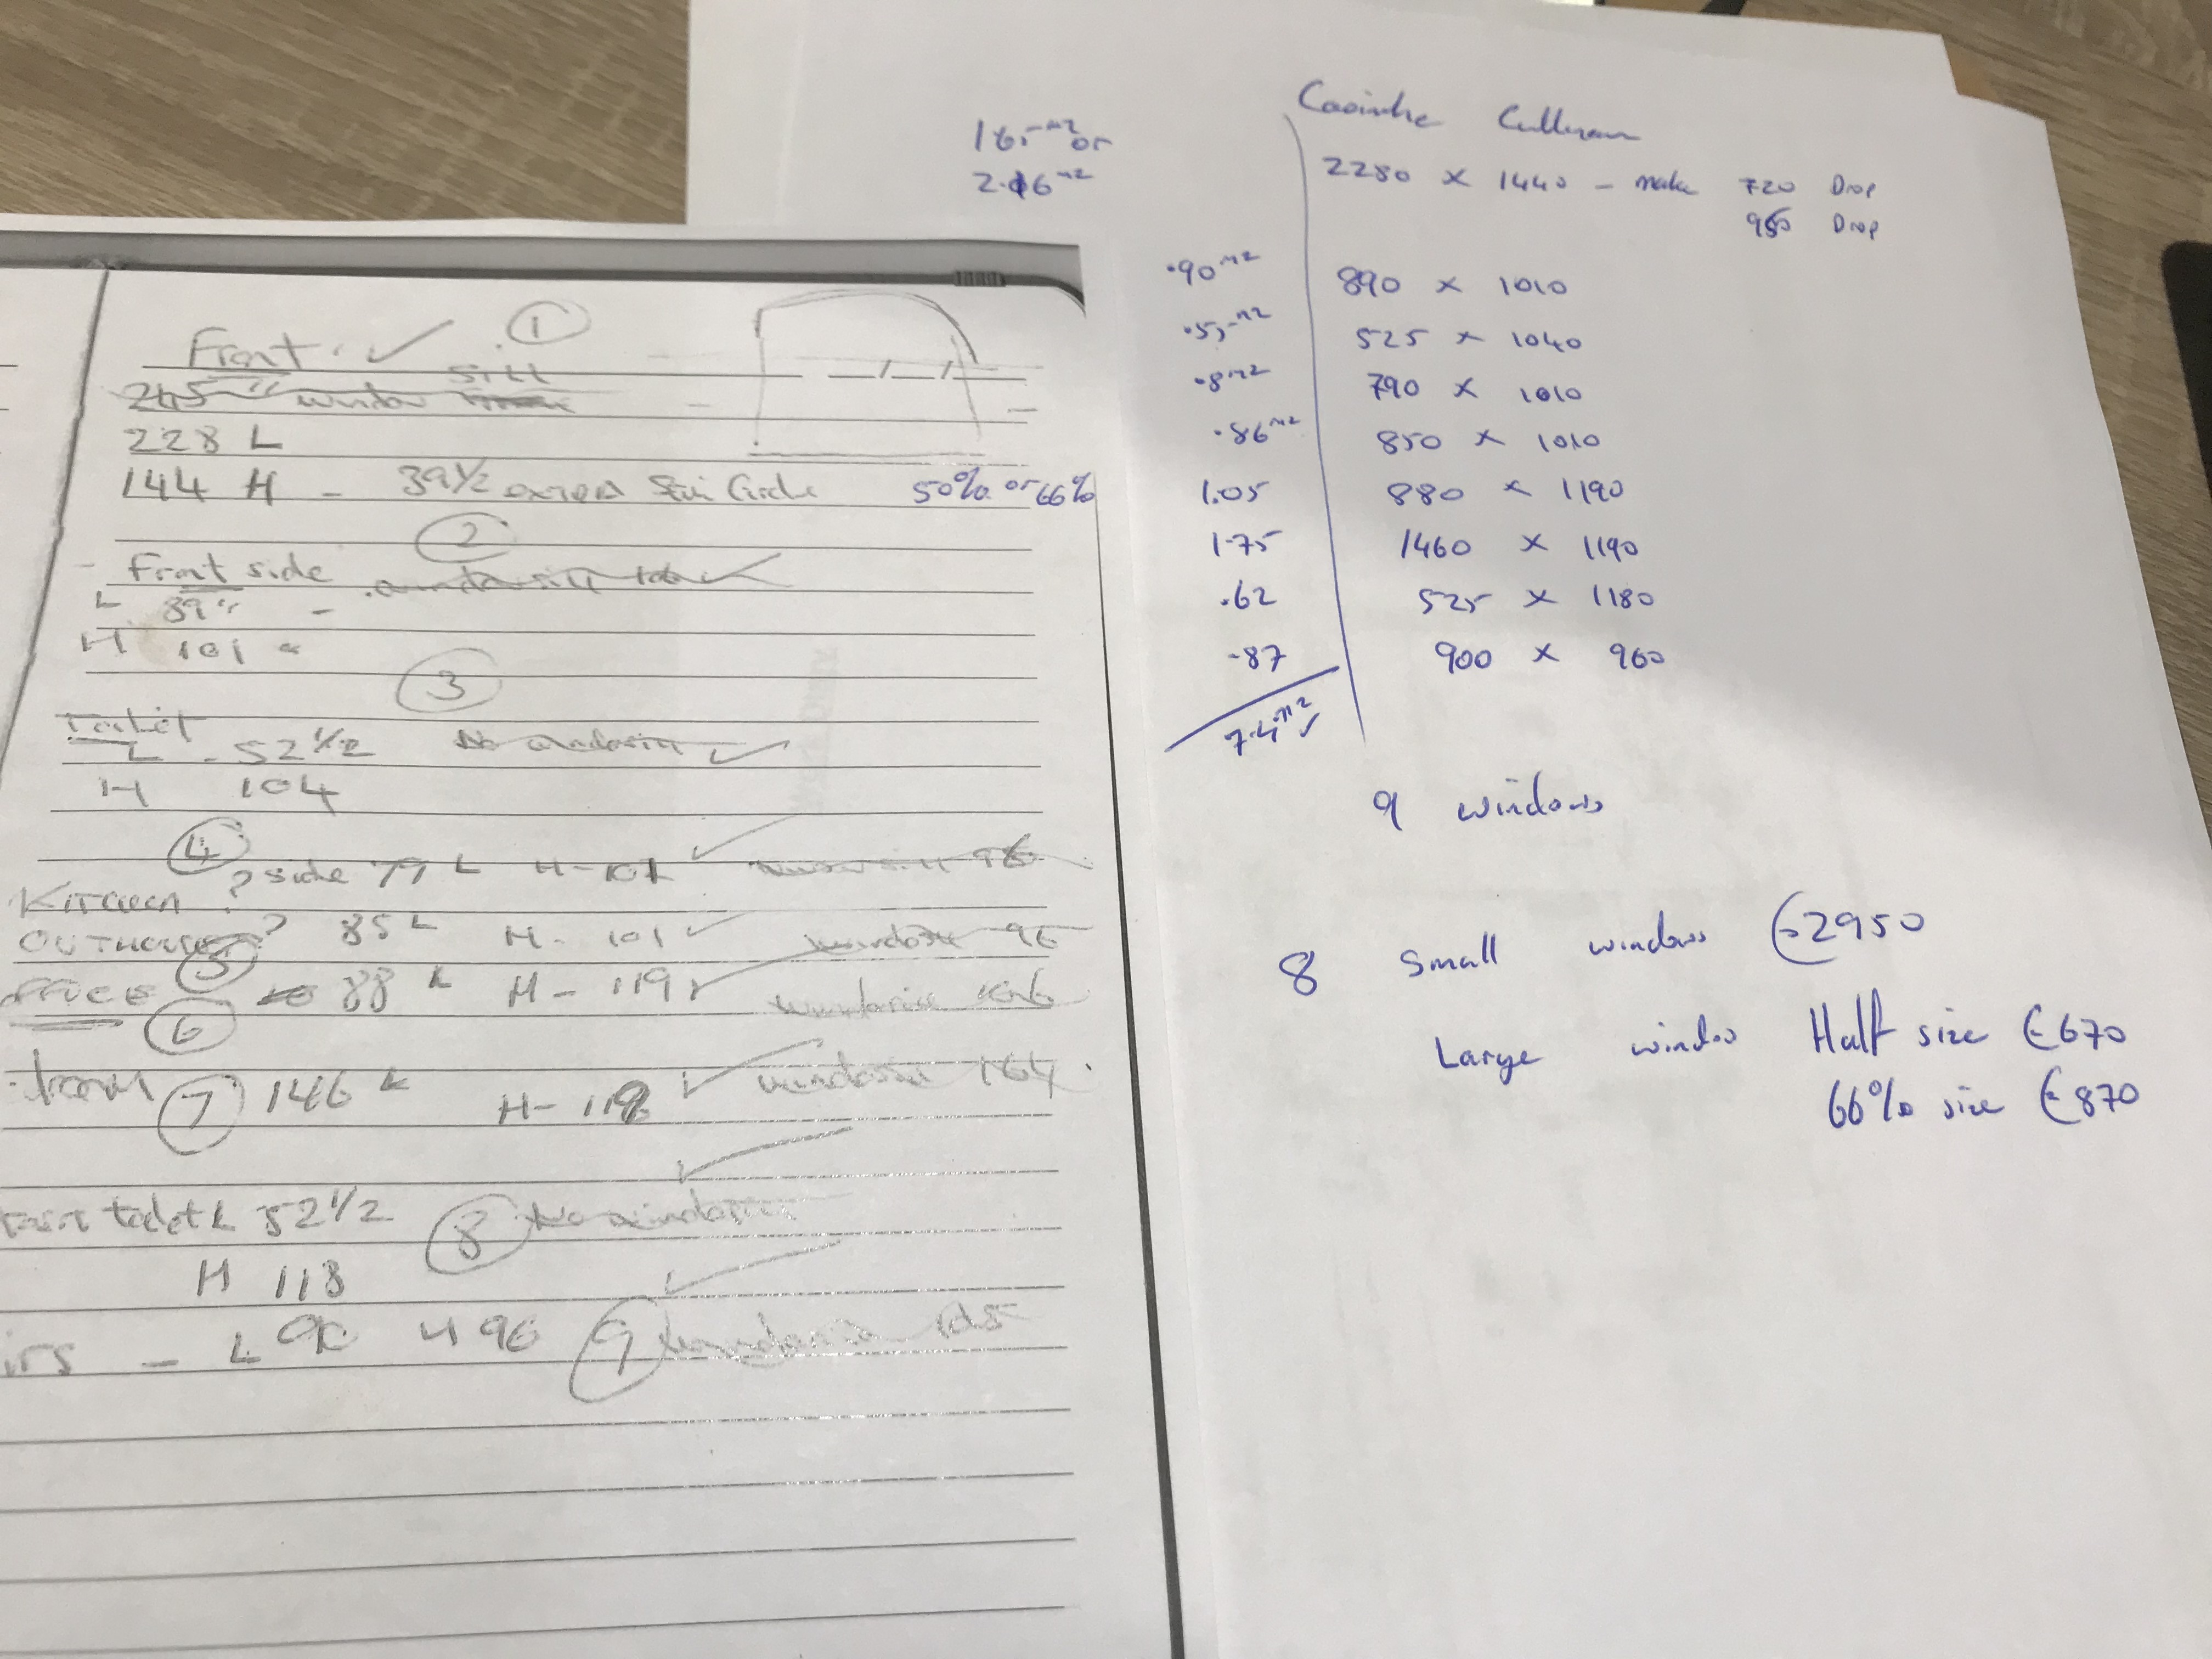 Front. ✓ ①
245" window sill
228 L
144 H - 39 1/2 Circle 50% or 66%
②
- Front side
L 89" -
H 101
③
Toilet
L - 52 1/2 No windowsill ✓
H 104
④
KITCHEN ? side 79 L H-101 ✓ windowsill 96
OUTHOUSE ? 85 L H - 101 ✓ 96
⑤
OFFICE 88 L H - 119 ✓ windowsill 106
⑥
⑦ 146 L H - 119 ✓ windowsill 164
toilet L 52 1/2 ⑧ No windowsill ✓
H 118
irs - L 90 H 96 ⑨ ✓ windowsill 105
Caoimhe Cullinan
or
2.16 m2
2280 x 1440 - make 720 Drop
950 Drop
.90 m2 890 x 1010
525 x 1040
.8 m2 790 x 1010
.86 m2 850 x 1010
1.05 880 x 1190
1.75 1460 x 1190
.62 525 x 1180
.87 900 x 960
7.4 m2 ✓
9 windows
8 Small windows €2950
Large window Half size €670
66% size €870